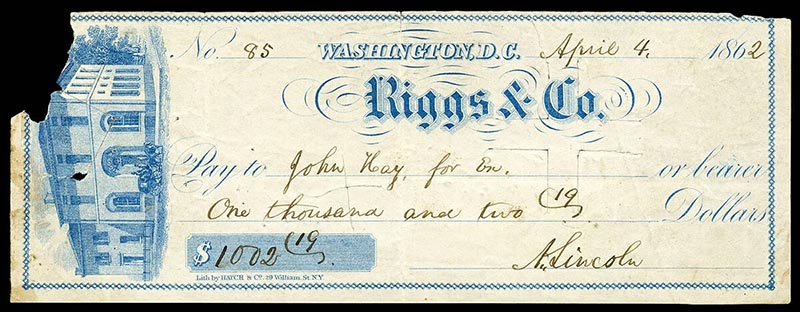 No. 85 WASHINGTON, D.C. April 4. 1862
Riggs & Co.
Pay to John Hay, for Ex. or bearer
One thousand and two (19 Dollars
$1002 (19.
Lith by HATCH & Co. 29 William St. N.Y.
A. Lincoln